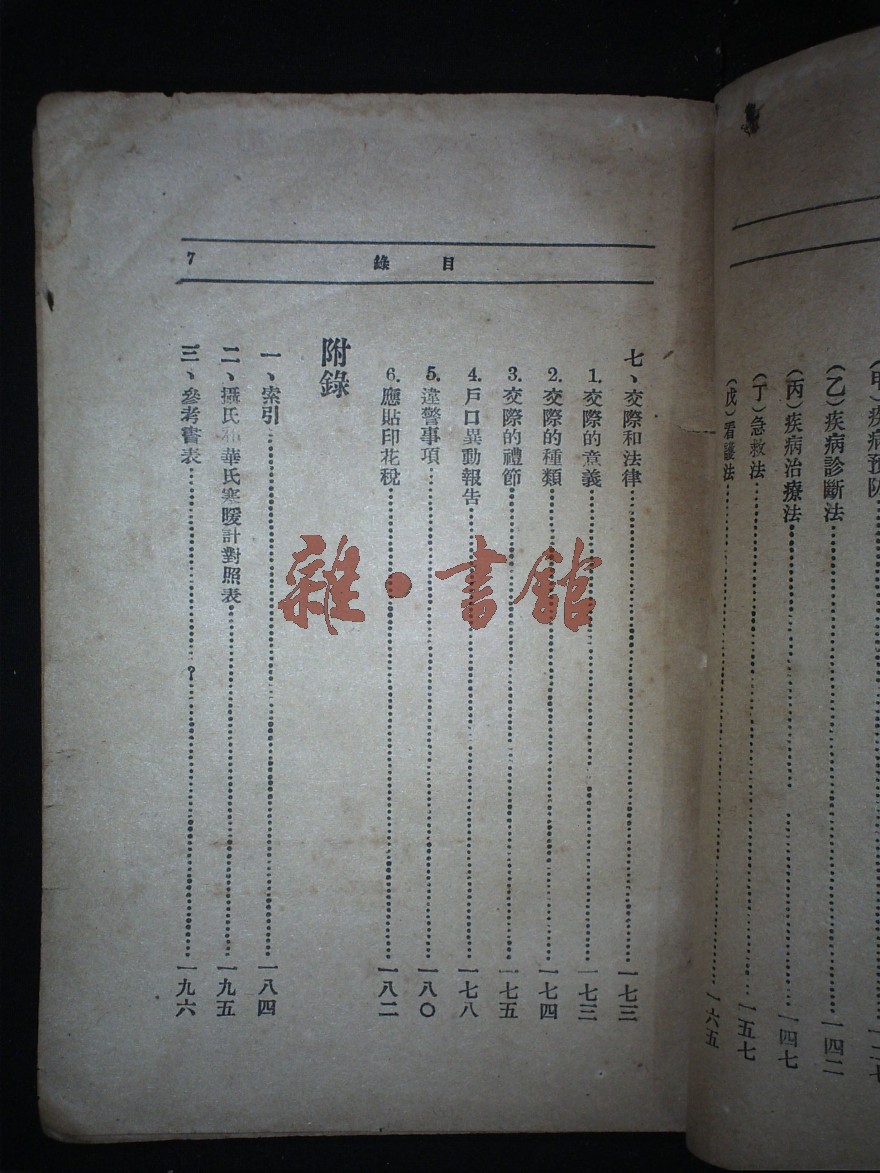 疾病預防
(乙)疾病診斷法……一四二
(丙)疾病治療法……一四七
(丁)急救法……一五七
(戊)看護法……一六五
目錄 7
七、交際和法律……一七三
1.交際的意義……一七三
2.交際的種類……一七四
3.交際的禮節……一七五
4.戶口異動報告……一七八
5.違警事項……一八〇
6.應貼印花稅……一八二
附錄
一、索引……一八四
二、攝氏和華氏寒暖計對照表……一九五
三、參考書表……一九六
雜·書館